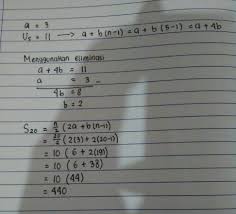 a = 3
U₅ = 11 → a + b(n-1) = a + b(5-1) = a + 4b
Menggunakan eliminasi
a + 4b = 11
a = 3 -
4b = 8
b = 2
S₂₀ = n/2 (2a + b(n-1))
= 20/2 (2(3) + 2(20-1)
= 10 (6 + 2(19)
= 10 (6 + 38)
= 10 (44)
= 440